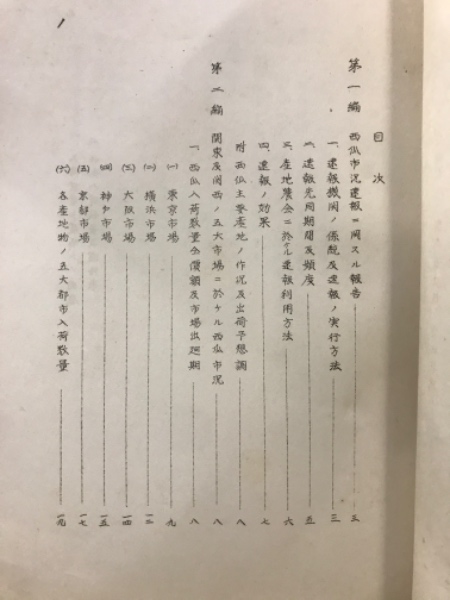 目次
第一編 西瓜市況速報ニ関スル報告 三
一、速報機関ノ係統及速報ノ実行方法 三
二、速報先用期間及頻度 五
三、産地農会ニ於ケル速報利用方法 六
四、速報ノ効果 七
附 西瓜主要産地ノ作況及出荷予想調 八
第二編 関東及関西ノ五大市場ニ於ケル西瓜市況 八
一、西瓜入荷数量全価額及市場出廻期 八
(一) 東京市場 九
(二) 横浜市場 一二
(三) 大阪市場 一四
(四) 神戸市場 一五
(五) 京都市場 一七
(六) 各産地物ノ五大都市入荷数量 一九